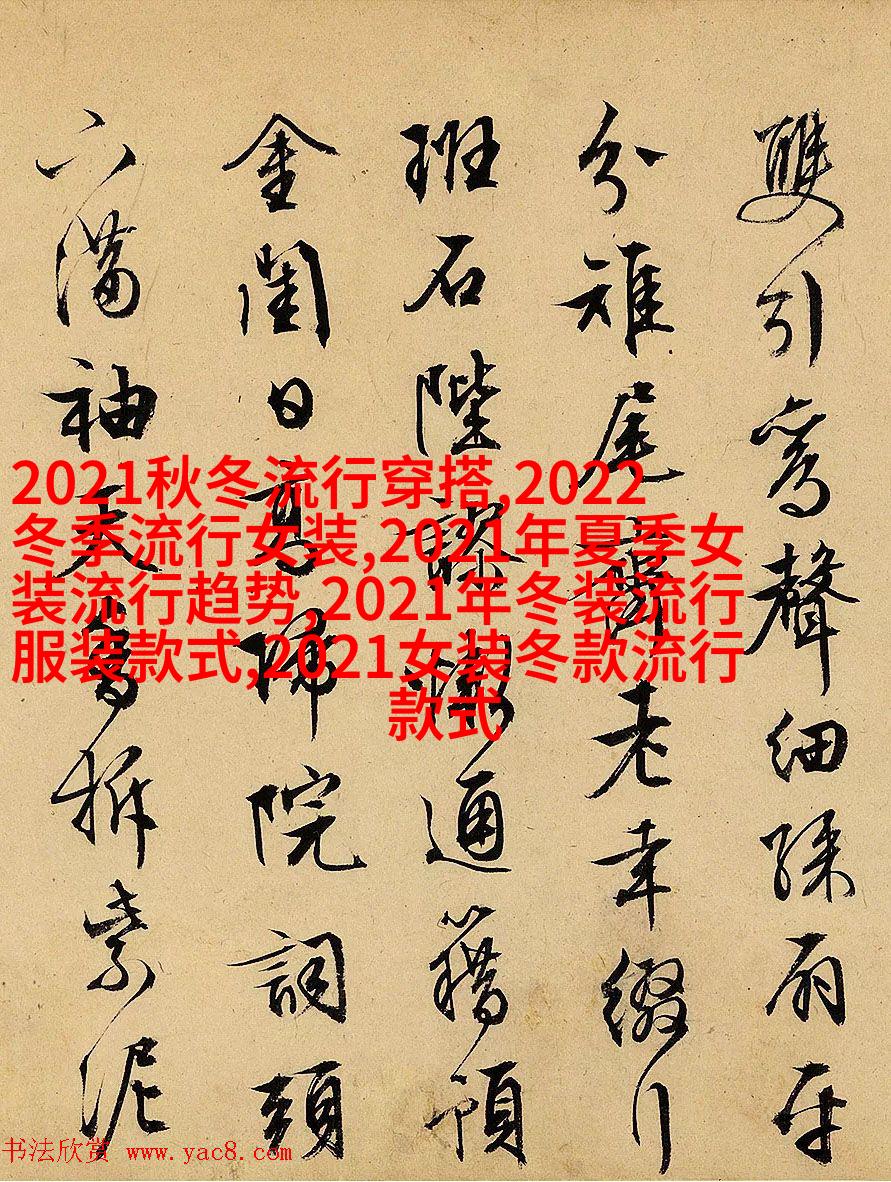 雙引鸞聲細綵扇平
分雉尾齊老幸綴行
班石陛謬慚通籍預
金閨日高歸院詞頭
下滿袖天香拆紫泥
2021秋冬流行穿搭,2022
冬季流行女装,2021年夏季女
装流行趋势,2021年冬装流行
服装款式,2021女装冬款流行
款式
书法欣赏 www.yac8.com